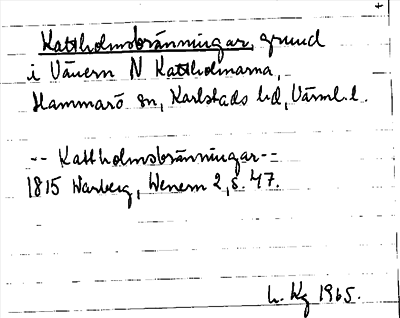 +
Kattholmsbränningar, grund
i Vänern N Kattholmarna,
Hammarö sn, Karlstads hd, Värml. l.
-- Kattholmsbränningar --
1815 Warberg, Wenern 2, s. 47.
h. Kg 1965.